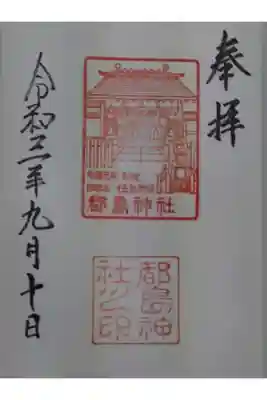 奉拝
都島神社
都島神
社之印
令和三年九月十日